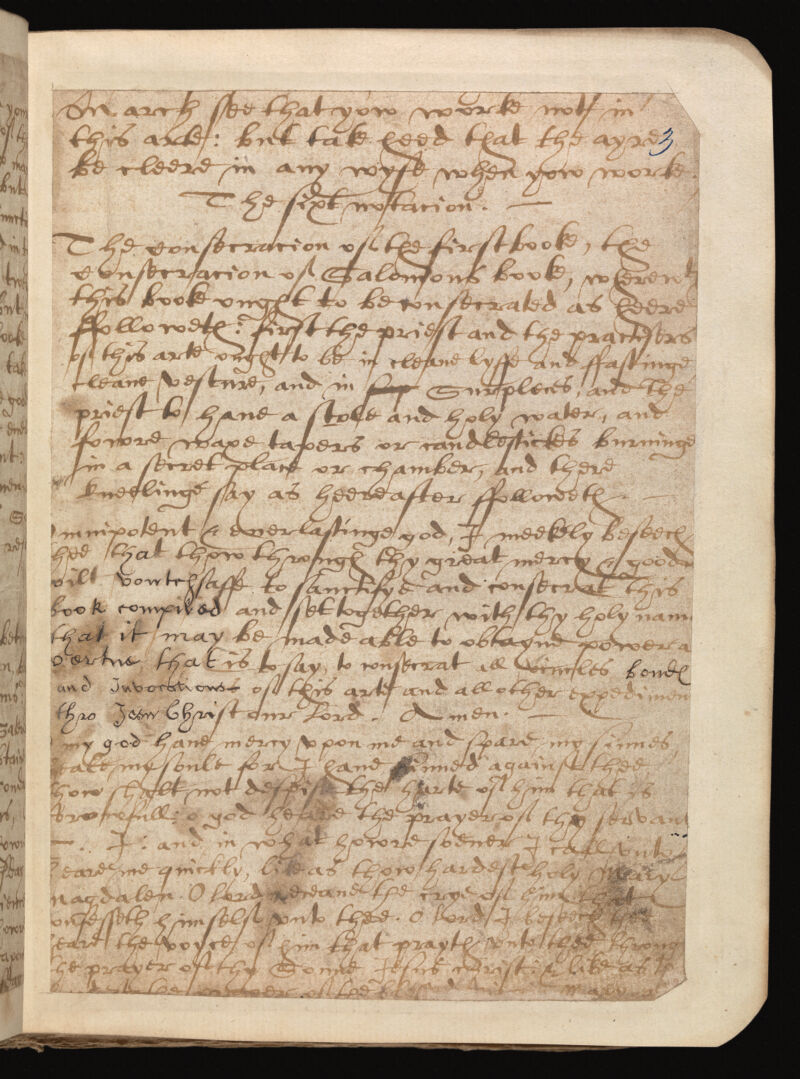 March see that yow worke not in
this arte: but take heed that the ayre 3
be cleere in any wyse when yow worke.
The sixt notacion.
The consecracion of the first booke, the
consecracion of Salomons booke, wherewth
this book ought to be consecrated as heere
ffolloweth: first the priest and the practisers
of this arte ought to be in cleane lyffe and ffastinge
cleane vesture, and in Surpleus, and the
priest to have a stole and holy water, and
fowre waxe tapers or candlestickes burninge
in a secret place or chamber, and there
kneelinge say as heereafter ffolloweth.
mnipotent & everlastinge god, I meekly beseech
hee that thow through thy great mercy & good
wilt voutchsaffe to sanctifye and consecrat this
book compiled and set together with thy holy nam
that it may be made able to obtayne power a
vertue, that is to say, to consecrat all Circles bondes
and Invocations of this arte and all other expedimen
thro Jesu Christ our Lord. Amen.
my god have mercy vpon me and spare my sinnes,
my soule for I have sinned against thee
how shalt not despise the harte of him that is
sorowfull: o god heare the prayer of thy servant
I: and in what howre soever I call vnto
eare me quickly, like as thow hardest holy Mary
magdalen. O Lord receave the crye of him that
onfesseth himself vnto thee. O Lord I beseech thee
eare the voyce of him that prayth vnto thee throug
he prayer of thy Sonne Jesus christ & like as
of the blessed